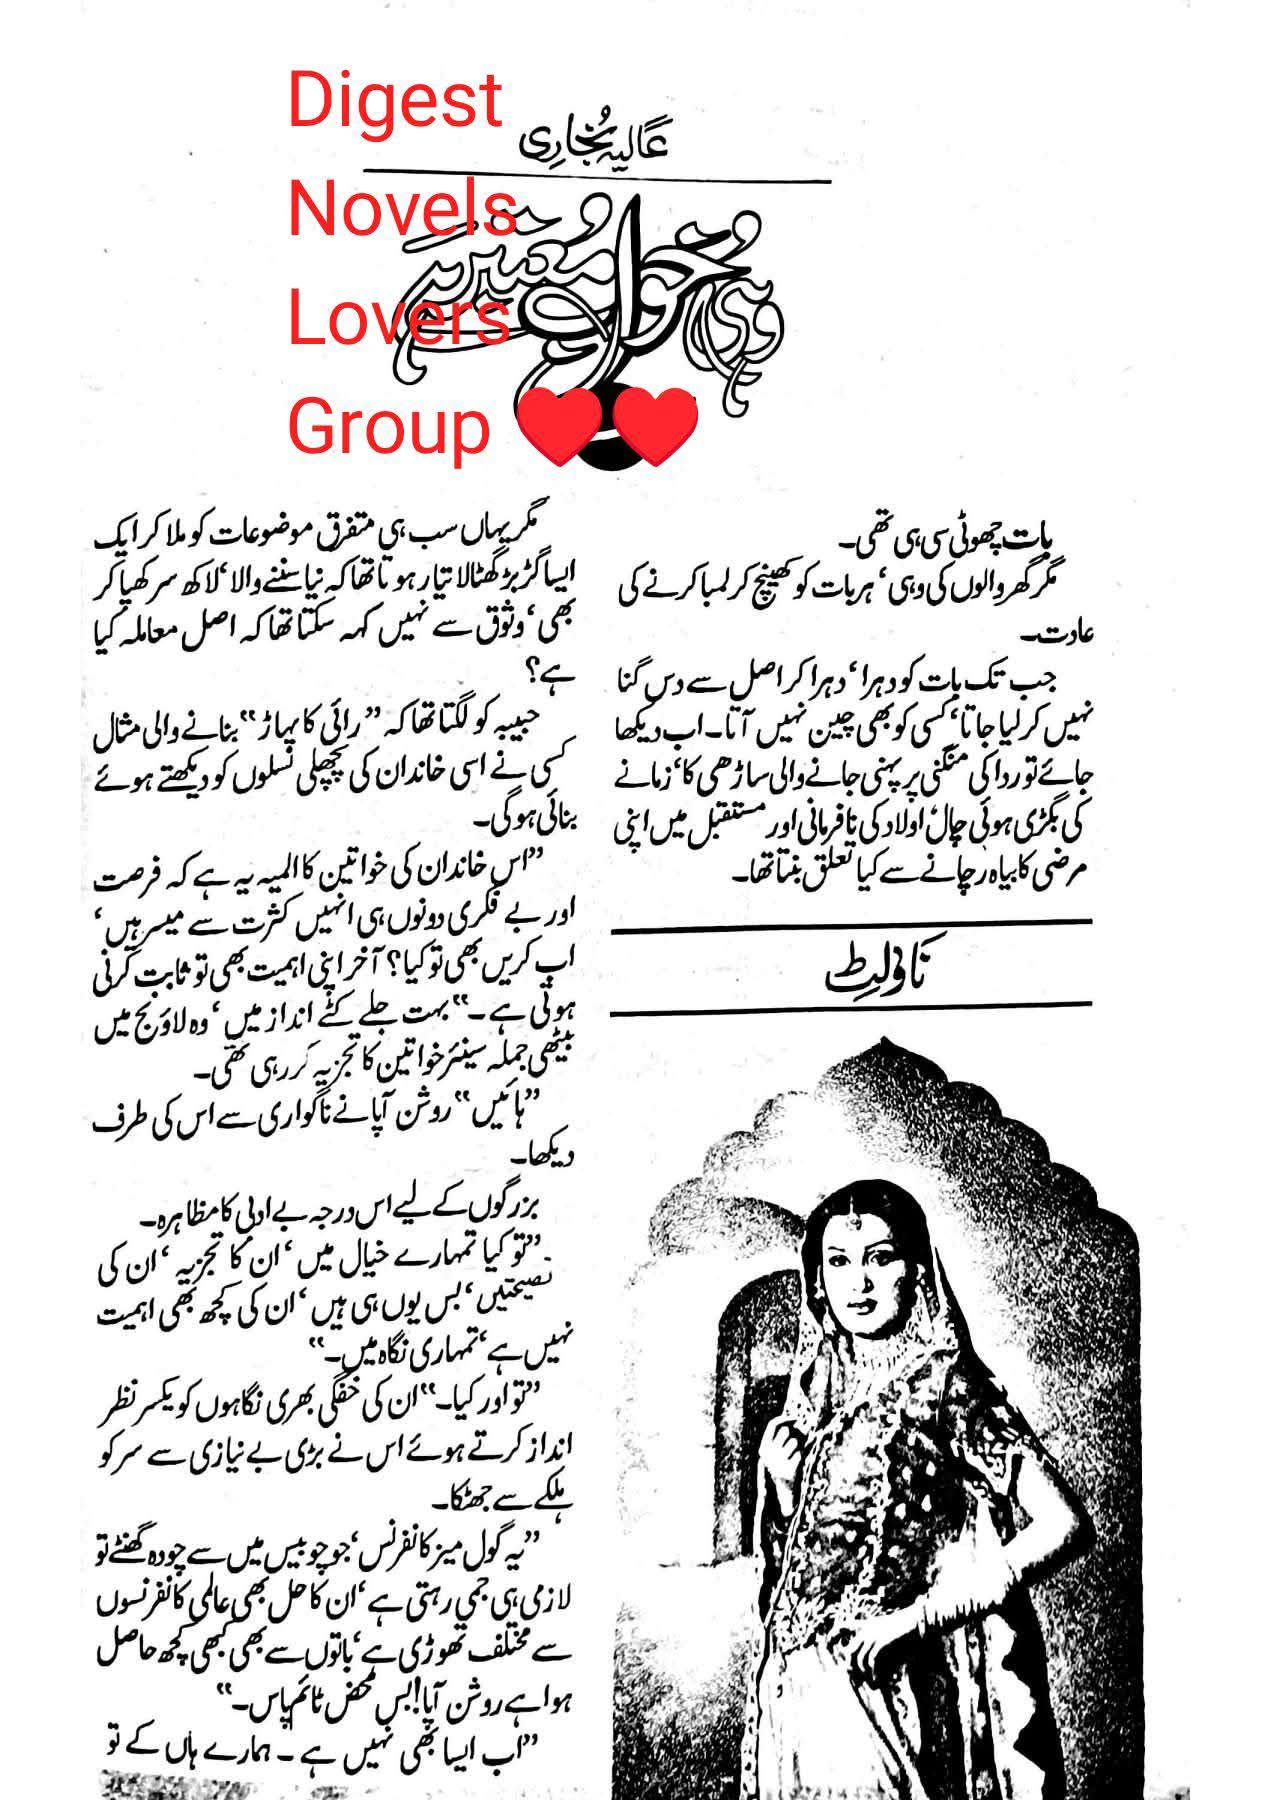 Digest
Novels
Lovers
Group ❤❤
عالیہ بُخاری
وہی خواب معتبر
بات چھوٹی سی ہی تھی۔
مگر گھر والوں کی وہی‘ ہر بات کو کھینچ کر لمبا کرنے کی
عادت۔
جب تک بات کو دہرا‘ دہرا کر اصل سے دس گنا
نہیں کر لیا جاتا‘ کسی کو بھی چین نہیں آتا۔ اب دیکھا
جائے تو ردا کی منگنی پر پہنی جانے والی ساڑھی کا‘ زمانے
کی بگڑی ہوئی چال‘ اولاد کی نافرمانی اور مستقبل میں اپنی
مرضی کا بیاہ رچانے سے کیا تعلق بنتا تھا۔
ناولٹ
مگر یہاں سب ہی متفرق موضوعات کو ملا کر ایک
ایسا گڑبڑ گھٹالا تیار ہوتا تھا کہ نیا سننے والا‘ لاکھ سر کھپا کر
بھی‘ وثوق سے نہیں کہہ سکتا تھا کہ اصل معاملہ کیا
ہے؟
حبیبہ کو لگتا تھا کہ ”رائی کا پہاڑ“ بنانے والی مثال
کسی نے اسی خاندان کی پچھلی نسلوں کو دیکھتے ہوئے
بنائی ہوگی۔
”اس خاندان کی خواتین کا المیہ یہ ہے کہ فرصت
اور بے فکری دونوں ہی انہیں کثرت سے میسر ہیں‘
اب کریں بھی تو کیا؟ آخر اپنی اہمیت بھی تو ثابت کرنی
ہوتی ہے۔“ بہت جلے کٹے انداز میں‘ وہ لاؤنج میں
بیٹھی جملہ سینئر خواتین کا تجزیہ کر رہی تھی۔
”ہائیں“ روشن آپا نے ناگواری سے اس کی طرف
دیکھا۔
بزرگوں کے لیے اس درجہ بے ادبی کا مظاہرہ۔
”تو کیا تمہارے خیال میں‘ ان کا تجزیہ‘ ان کی
نصیحتیں‘ بس یوں ہی ہیں‘ ان کی کچھ بھی اہمیت
نہیں ہے‘ تمہاری نگاہ میں۔“
”تو اور کیا۔“ ان کی خفگی بھری نگاہوں کو یکسر نظر
انداز کرتے ہوئے اس نے بڑی بے نیازی سے سر کو
ہلکے سے جھٹکا۔
”یہ گول میز کانفرنس‘ جو چوبیس میں سے چودہ گھنٹے تو
لازمی ہی جمی رہتی ہے‘ ان کا حل بھی عالمی کانفرنسوں
سے مختلف تھوڑی ہے‘ باتوں سے بھی کبھی کچھ حاصل
ہوا ہے روشن آپا! بس محض ٹائم پاس۔“
”اب ایسا بھی نہیں ہے۔ ہمارے ہاں کے تو